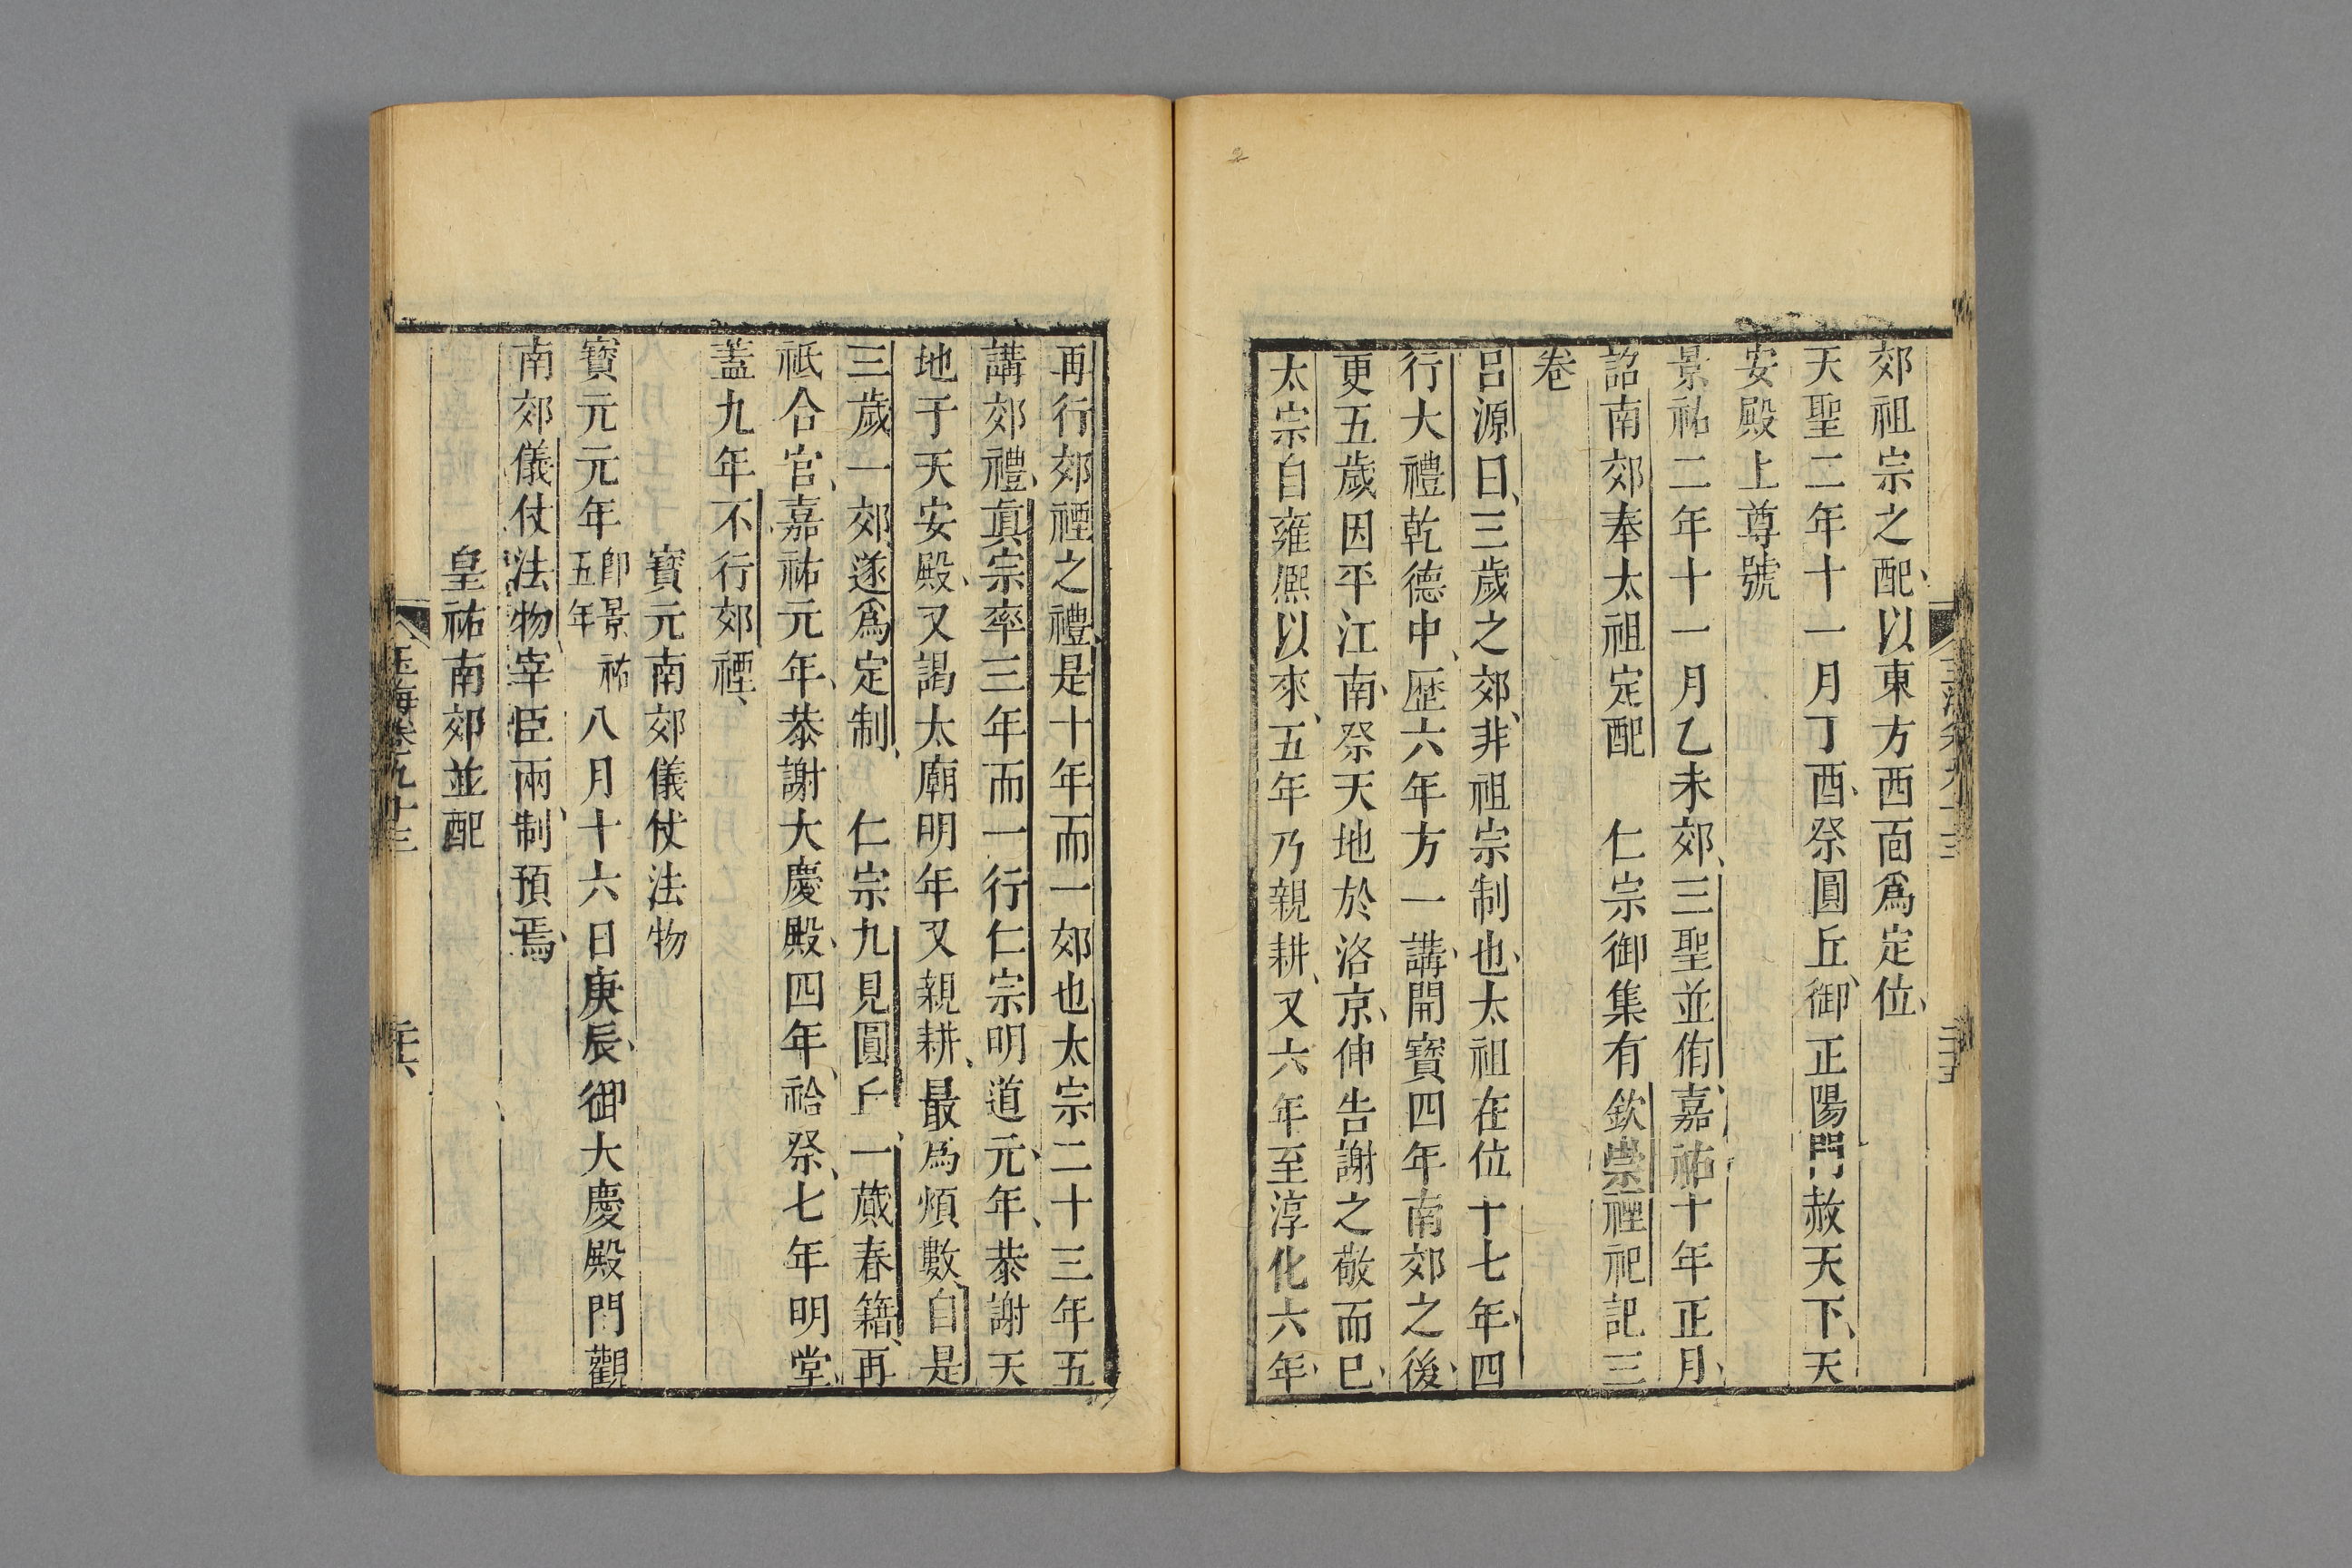 郊祖宗之配以東方西面爲定位
天聖二年十一月丁酉祭圓丘御正陽門赦天下天
安殿上尊號
景祐二年十一月乙未郊三聖並侑嘉祐十年正月
詔南郊奉太祖定配　仁宗御集有欽崇禋祀記三
卷
呂源曰三歲之郊非祖宗制也太祖在位十七年四
行大禮乾德中歷六年方一講開寶四年南郊之後
更五歲因平江南祭天地於洛京伸告謝之敬而已
太宗自雍熈以來五年乃親耕又六年至淳化六年
再行郊禋之禮是十年而一郊也太宗二十三年五
講郊禮眞宗率三年而一行仁宗明道元年恭謝天
地于天安殿又謁太廟明年又親耕最爲煩數自是
三歲一郊遂爲定制　仁宗九見圓丘一蕆春籍再
祗合宮嘉祐元年恭謝大慶殿四年祫祭七年明堂
蓋九年不行郊禋
寶元南郊儀仗法物
寶元元年卽景祐五年八月十六日庚辰御大慶殿門觀
南郊儀仗法物宰臣兩制預焉
皇祐南郊並配
玉海卷九十三